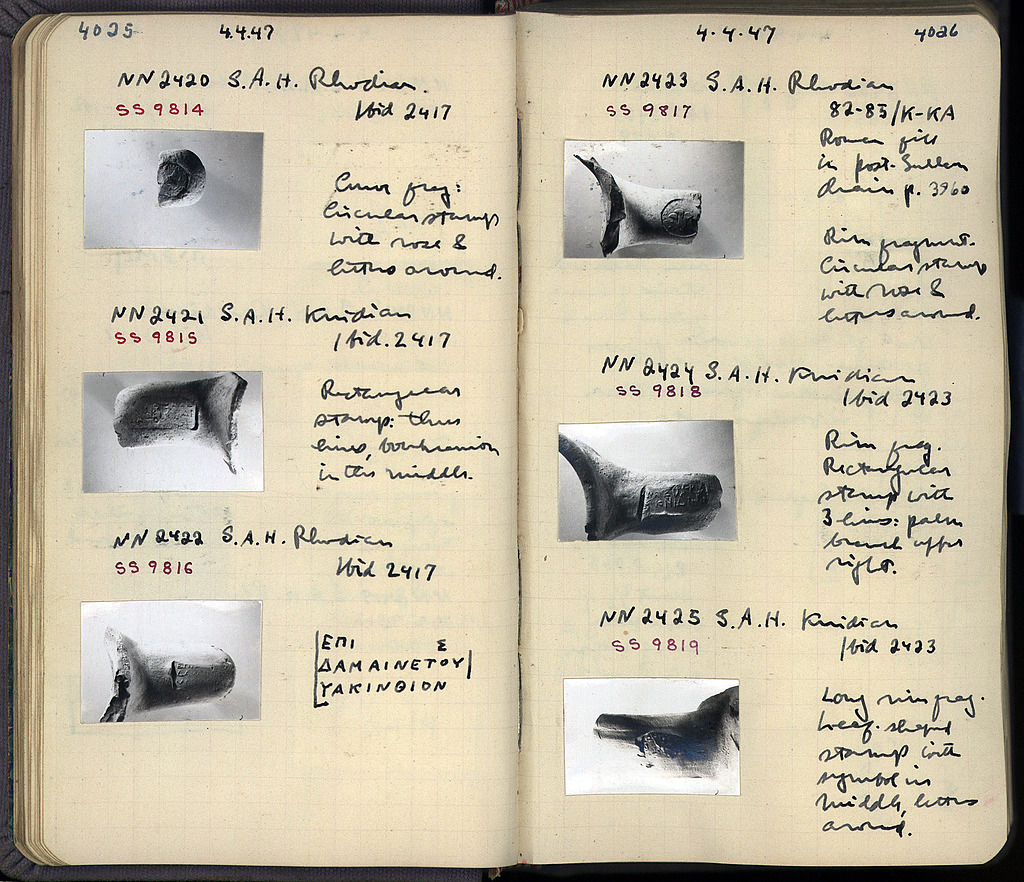 4025
4.4.47
NN2420 S.A.H. Rhodian.
SS 9814
Ibid 2417
frag:
Circular stamp
with rose &
letters around.
NN2421 S.A.H. Knidian
SS 9815
Ibid. 2417
Rectangular
stamp: three
lines, boukranion
in the middle.
NN2422 S.A.H. Rhodian
SS 9816
Ibid 2417
ΕΠΙ Σ
ΔΑΜΑΙΝΕΤΟΥ
ΥΑΚΙΝΘΙΟΝ
4.4.47
4026
NN2423 S.A.H. Rhodian
SS 9817
82-85/K-KA
Roman fill
in post-Sullan
drain p. 3960
Rim fragment.
Circular stamp
with rose &
letters around.
NN2424 S.A.H. Knidian
SS 9818
Ibid 2423
Rim frag.
Rectangular
stamp with
3 lines: palm
branch upper
right.
NN2425 S.A.H. Knidian
SS 9819
Ibid 2423
Long rim frag.
Leaf-shaped
stamp with
symbol in
middle, letters
around.